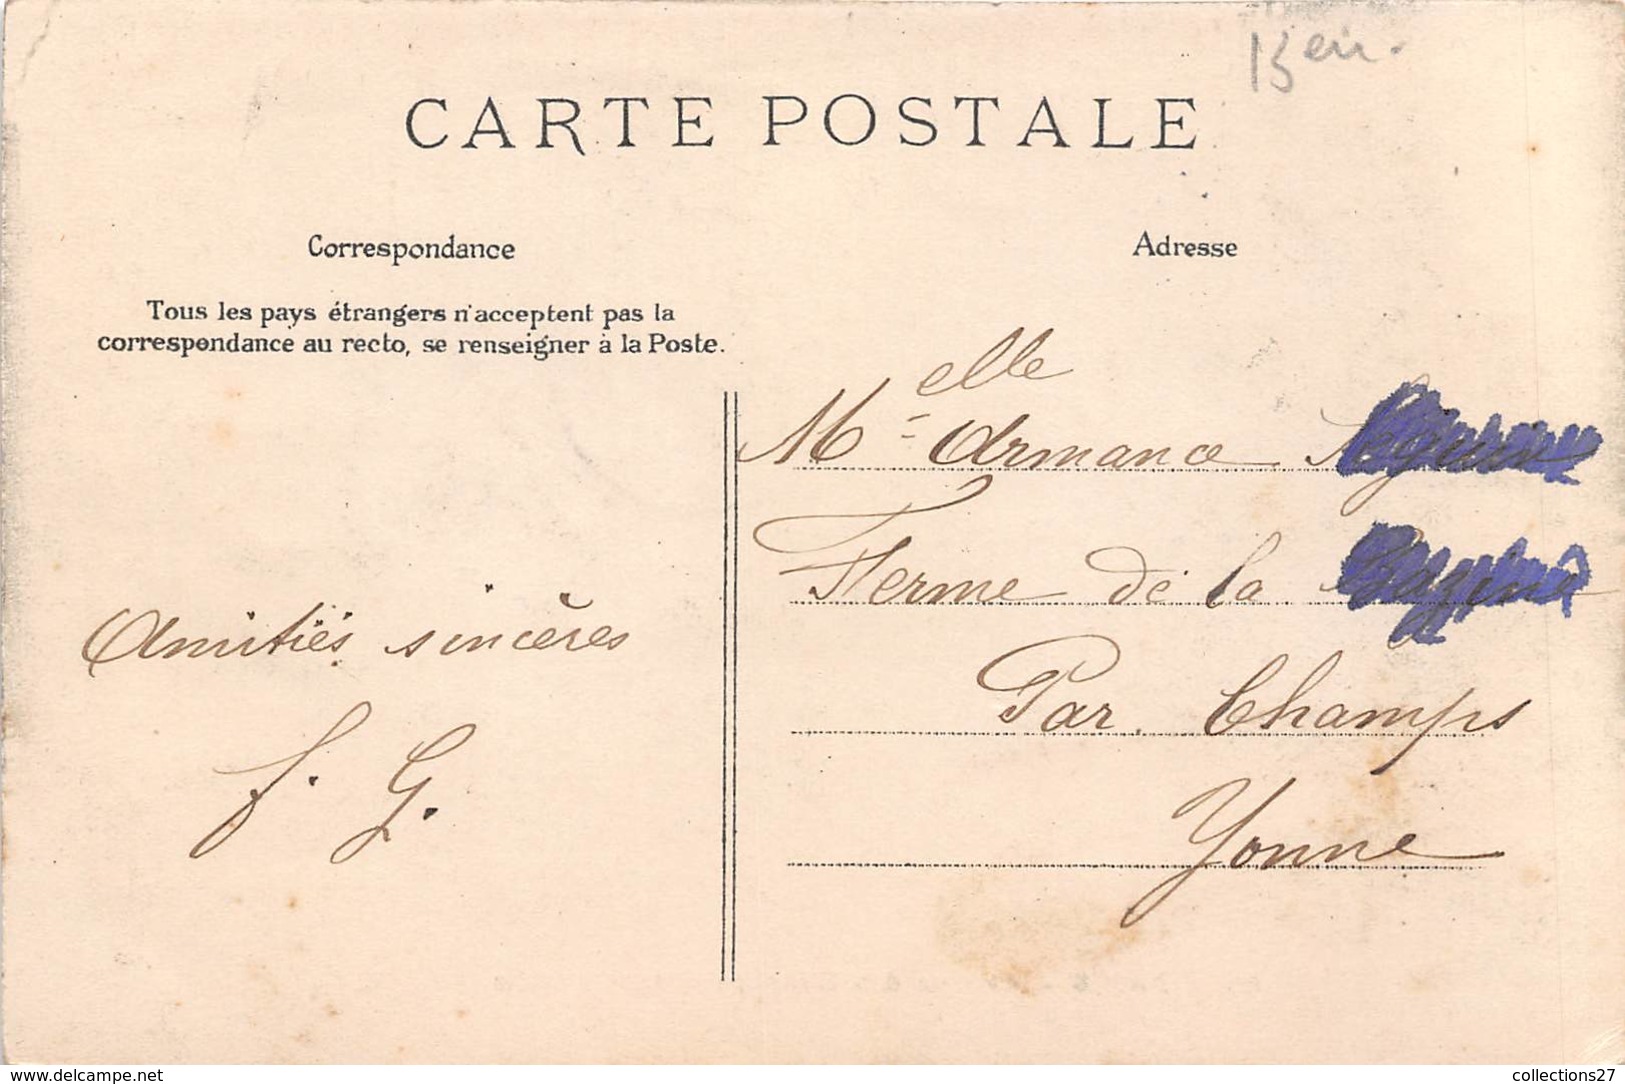 CARTE POSTALE
Correspondance
Adresse
Tous les pays étrangers n'acceptent pas la
correspondance au recto, se renseigner à la Poste.
Melle Armance
Ferme de la
Par Champs
Yonne
Amitiés sincères
f. G.
delcampe.net
collections27